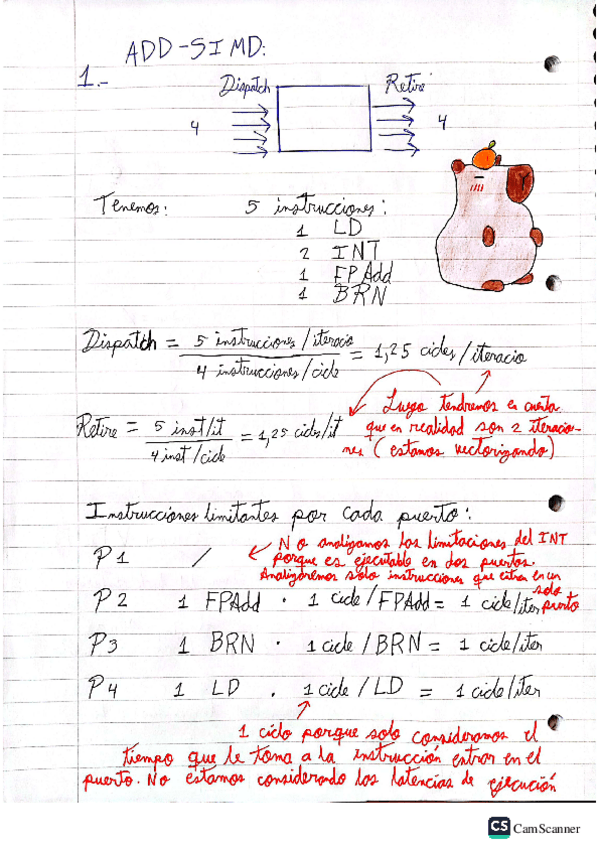 ADD-SIMD:
1.-
Dispatch
Retire
4
4
Tenemos: 5 instrucciones:
1 LD
2 INT
1 FPAdd
1 BRN
Dispatch = 5 instrucciones/iteracio
4 instrucciones/cicle = 1,25 cicles/iteracio
Luego tendremos en cuenta
Retire = 5 inst/it
4 inst/cicle = 1,25 cicles/it
que en realidad son 2 iteracio-
nes (estamos vectorizando)
Instrucciones limitantes por cada puerto:
P1 /
No analizamos las limitaciones del INT
porque es ejecutable en dos puertos.
Analizaremos solo instrucciones que entren en un
solo
puerto
P2 1 FPAdd · 1 cicle/FPAdd = 1 cicle/iter
P3 1 BRN · 1 cicle/BRN = 1 cicle/iter
P4 1 LD · 1 cicle/LD = 1 cicle/iter
1 ciclo porque solo consideramos el
tiempo que le toma a la instrucción entrar en el
puerto. No estamos considerando las latencias de ejecución
CS CamScanner